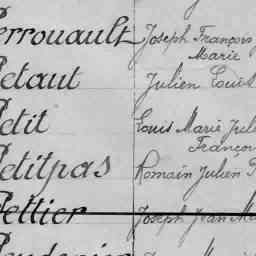 Perrouault Joseph François
Marie
Petaut Julien Louis
Petit Louis Marie
François
Petitpas Romain Julien
Pettier Joseph Jean